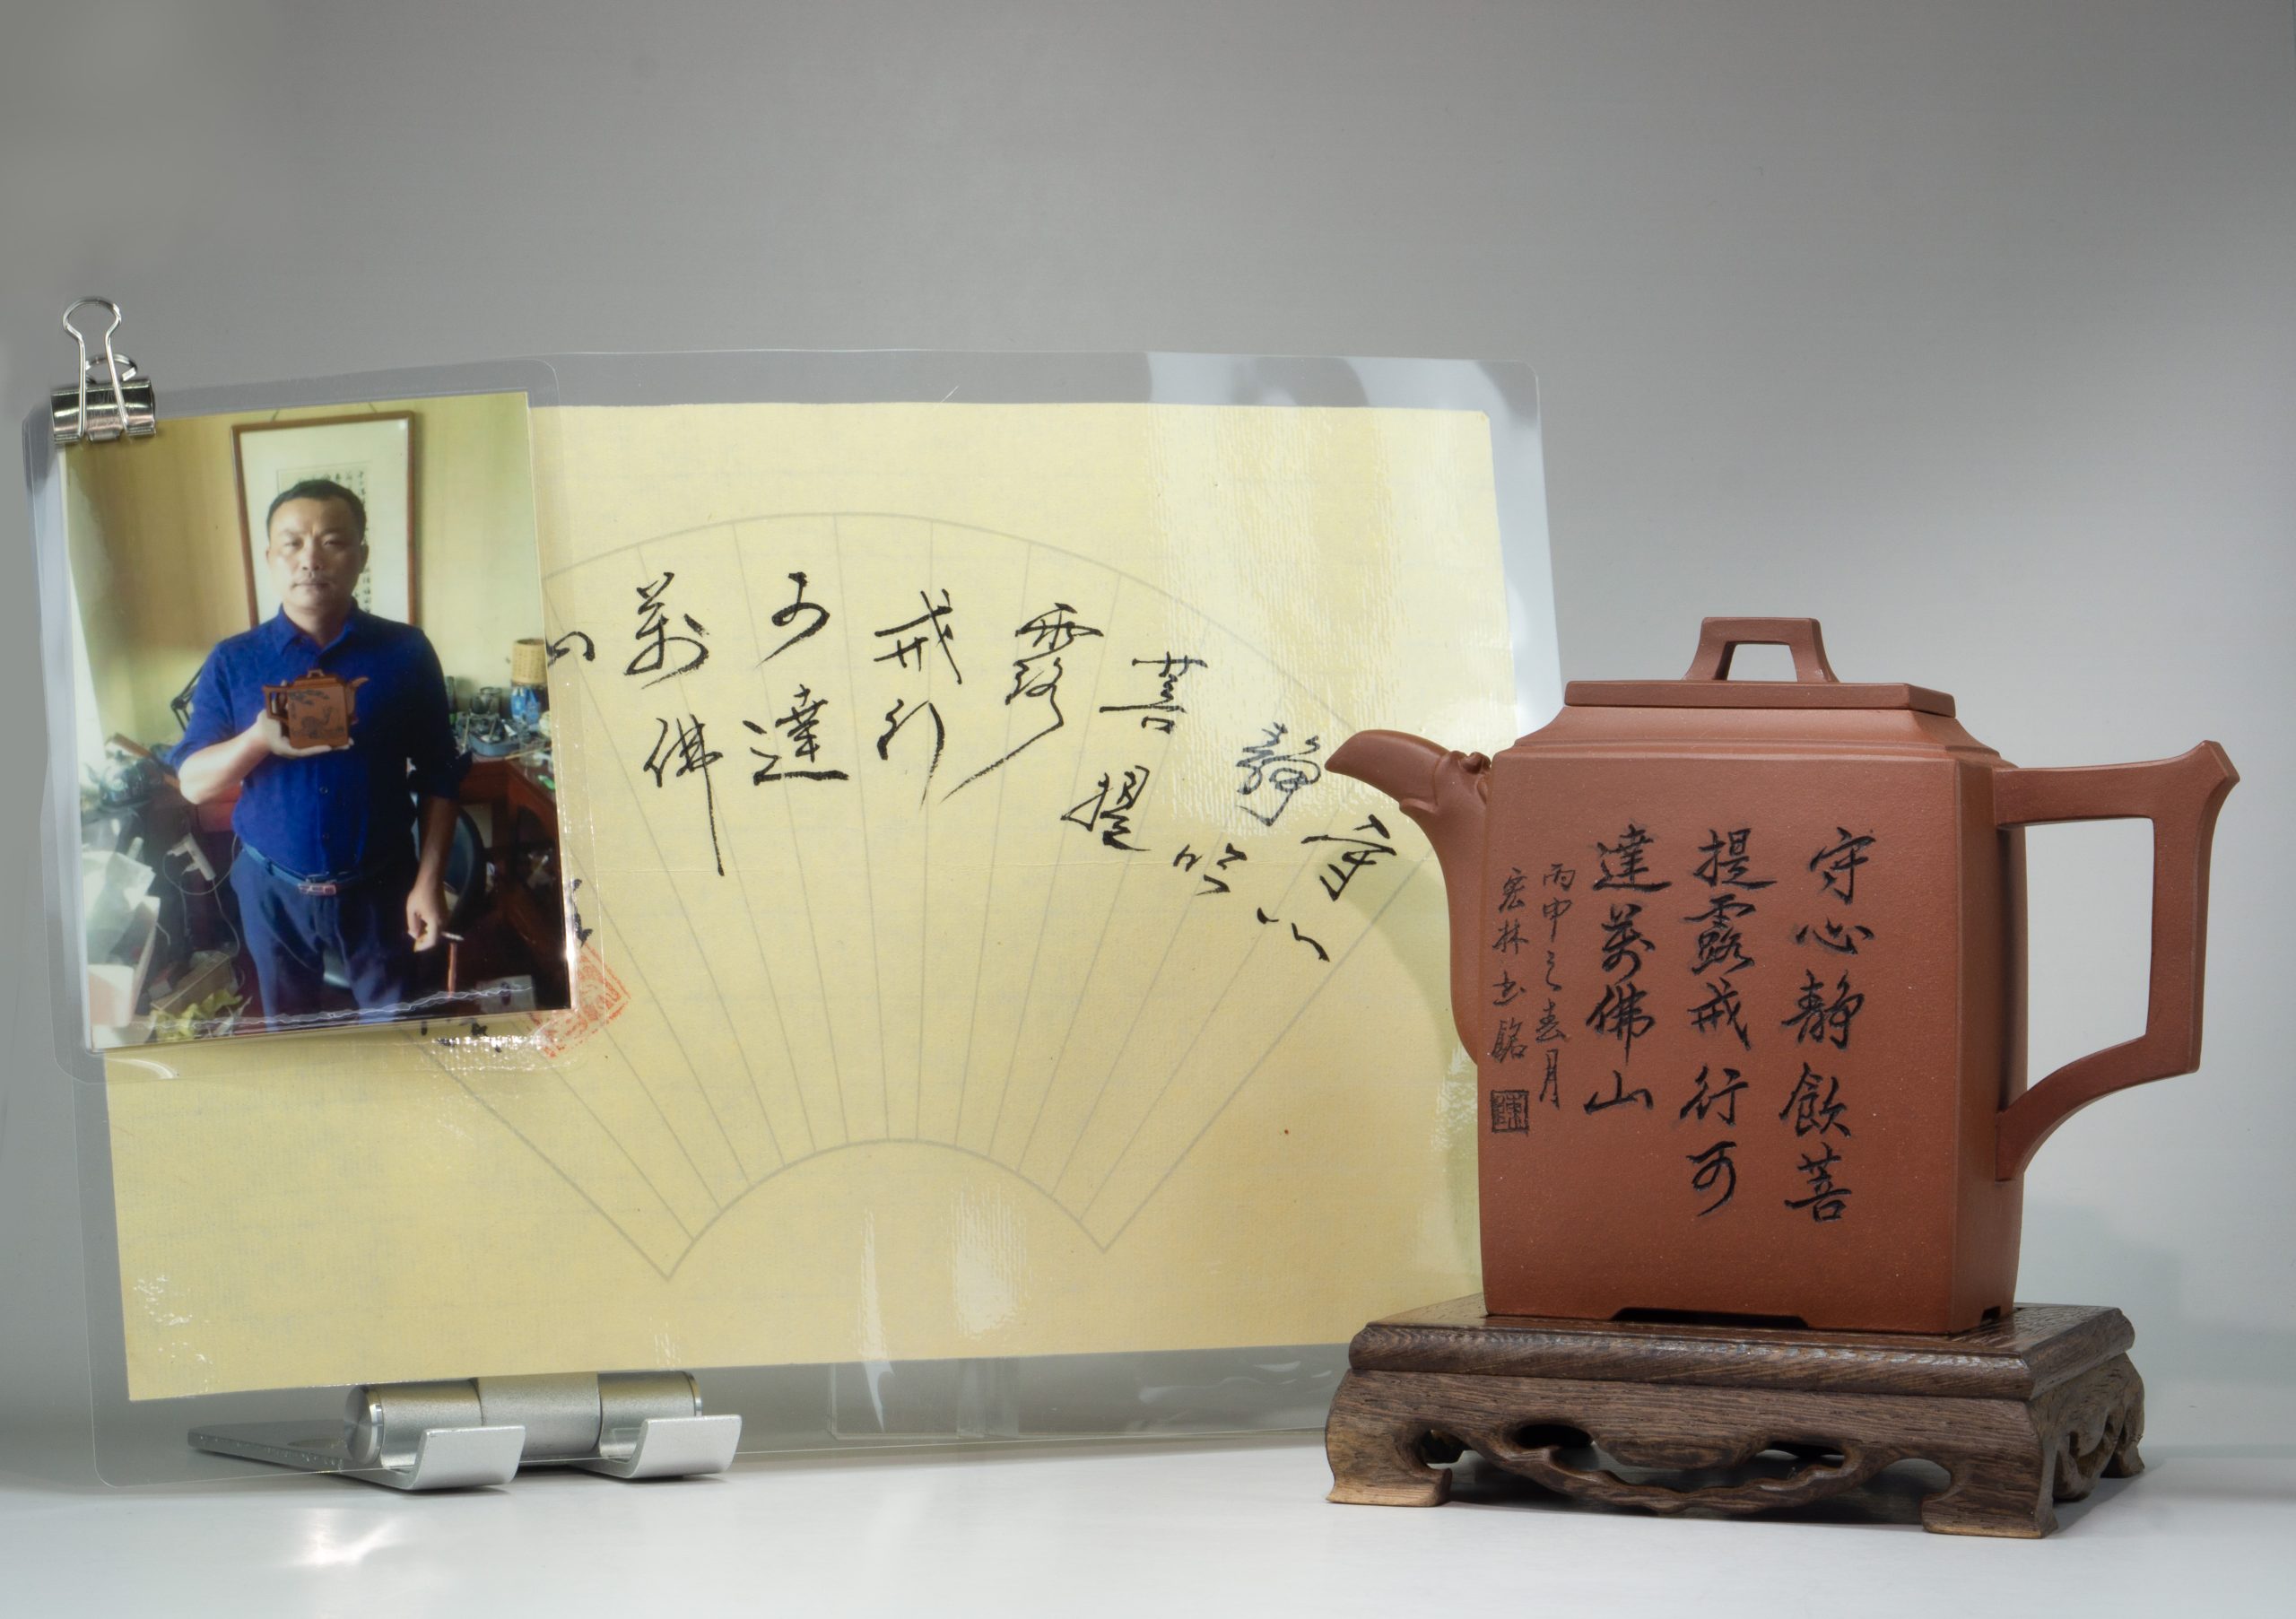 守心
静吟
菩提
露
戒行
可達
萬佛
山
守心静飲菩
提露戒行可
達萬佛山
丙申之春月
宏林書銘